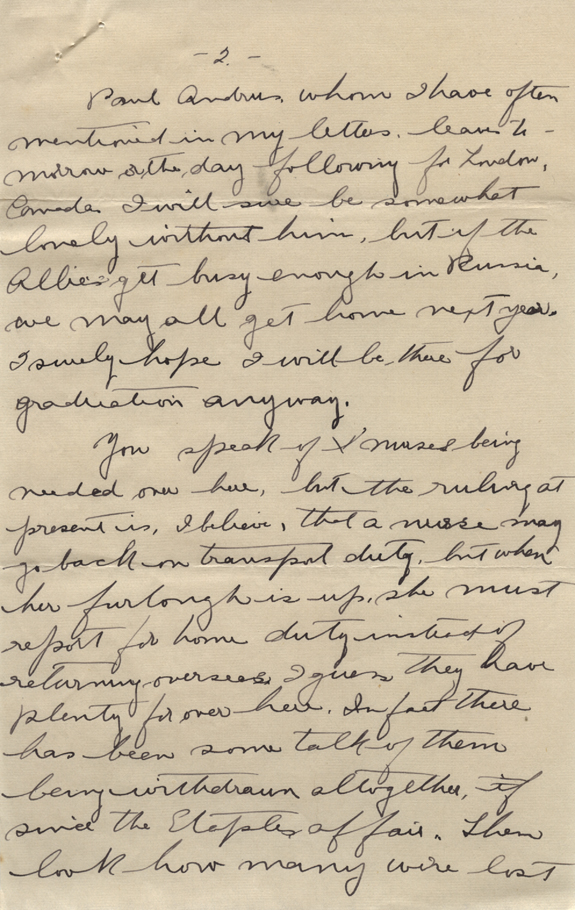 - 2. -
Paul Andrus, whom I have often
mentioned in my letters, leaves to-
morrow or the day following for London,
Canada. I will sure be somewhat
lonely without him, but if the
Allies get busy enough in Russia,
we may all get home next year.
I surely hope I will be there for
graduation anyway.
You speak of nurses being
needed over here, but the ruling at
present is, I believe, that a nurse may
go back on transport duty, but when
her furlough is up, she must
report for home duty instead of
returning overseas. I guess they have
plenty for over here. In fact there
has been some talk of them
being withdrawn altogether,
since the Etaples affair. Then
look how many were lost